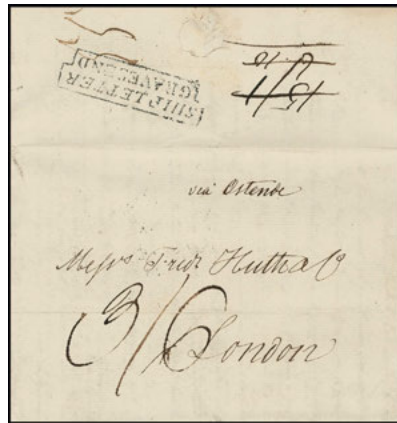 SHIP LETTER
GRAVESEND
via Ostende
Messrs Fredk Huth & Co
3/6
London